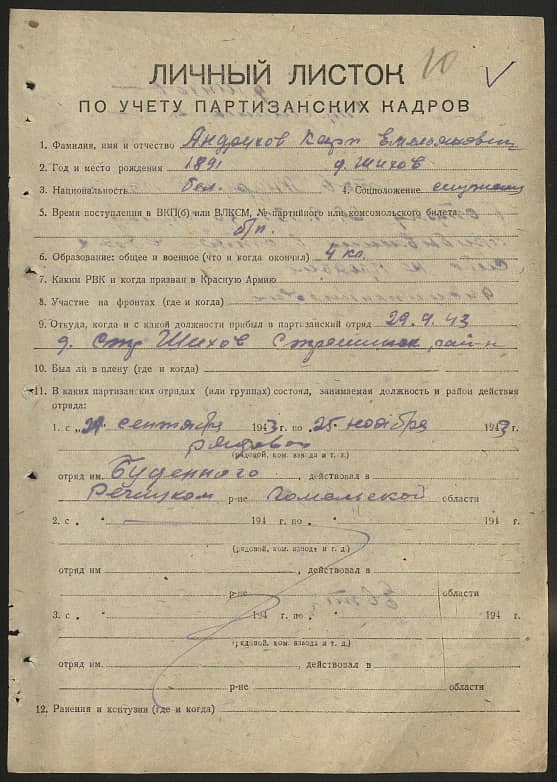 10
ЛИЧНЫЙ ЛИСТОК
ПО УЧЕТУ ПАРТИЗАНСКИХ КАДРОВ
1. Фамилия, имя и отчество Андрухов Карп Емельянович
2. Год и место рождения 1891 д. Шихов
3. Национальность бел. 4. Соцположение служащ
5. Время поступления в ВКП(б) или ВЛКСМ, № партийного или комсомольского билета
б/п.
6. Образование: общее и военное (что и когда окончил) 4 кл.
7. Каким РВК и когда призван в Красную Армию
8. Участие на фронтах (где и когда)
9. Откуда, когда и с какой должности прибыл в партизанский отряд 29.9.43
д. Стр Шихов Стрешинск. рай-н
10. Был ли в плену (где и когда)
11. В каких партизанских отрядах (или группах) состоял, занимаемая должность и район действия
отряда:
1. с „ сентября 1943 г. по „25 ноября 1943 г.
рядовой
(рядовой, ком. взвода и т. д.)
отряд им. Буденного, действовал в
Речицком р-не Гомельской области
2. с „ “ 194 г. по „ “ 194 г.
(рядовой, ком. взвода и т. д.)
отряд им. , действовал в
р-не области
3. с „ “ 194 г. по „ “ 194 г.
(рядовой, ком. взвода и т. д.)
отряд им. , действовал в
р-не области
12. Ранения и контузии (где и когда)